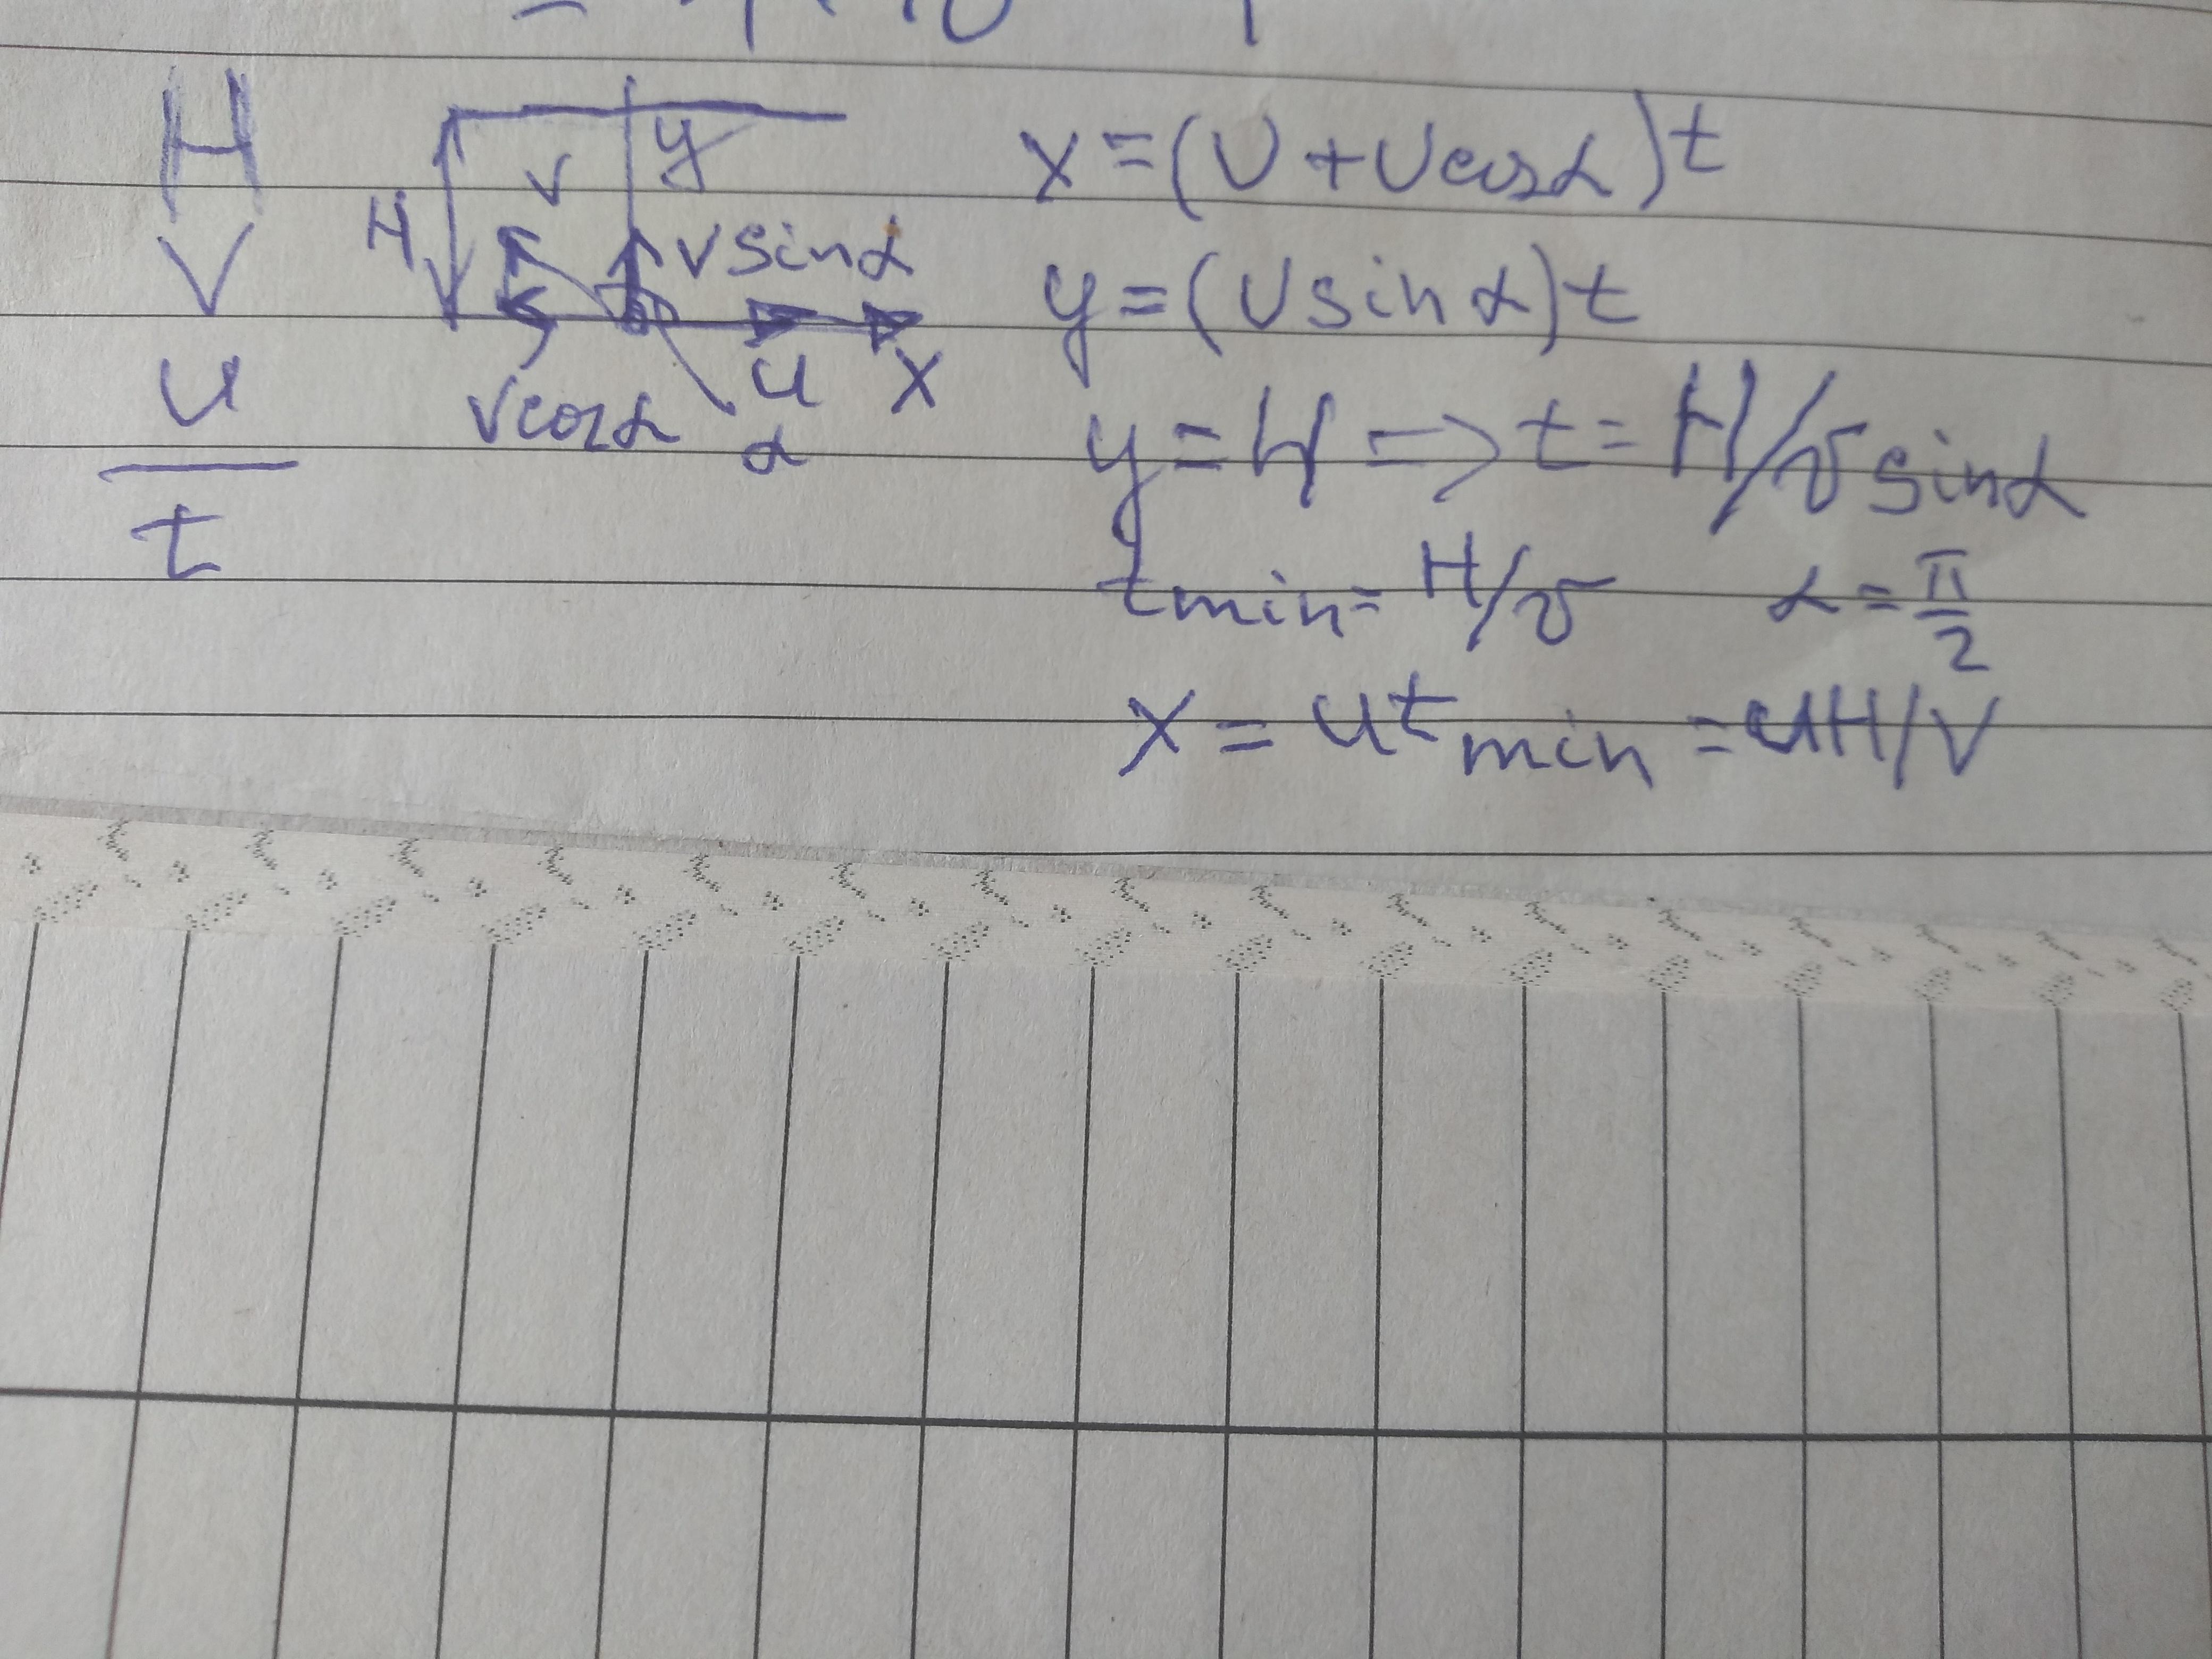 H
V
u
t
y
V
H
Vsinα
u
X
Vcosα
α
x=(U+Ucosα)t
y=(Usinα)t
y=H=>t=H/υsinα
tmin=H/υ α=π/2
X=utmin=uH/V